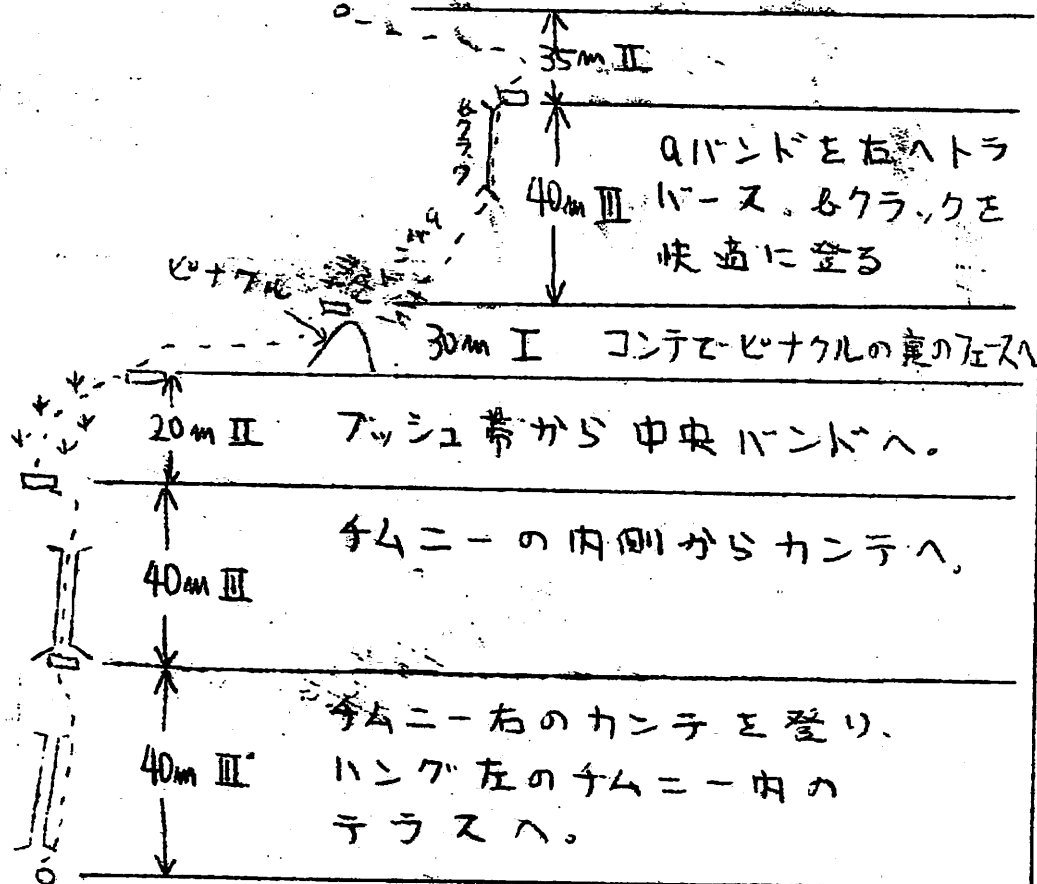 35m II
bクラック
40m III
aバンドを右へトラ
バース、bクラックを
快適に登る
a
ピナクル
30m I コンテでピナクルの裏のフェースへ
20m II ブッシュ帯から中央バンドへ。
40m III
チムニーの内側からカンテへ。
40m III
チムニー右のカンテを登り、
ハング左のチムニー内の
テラスへ。